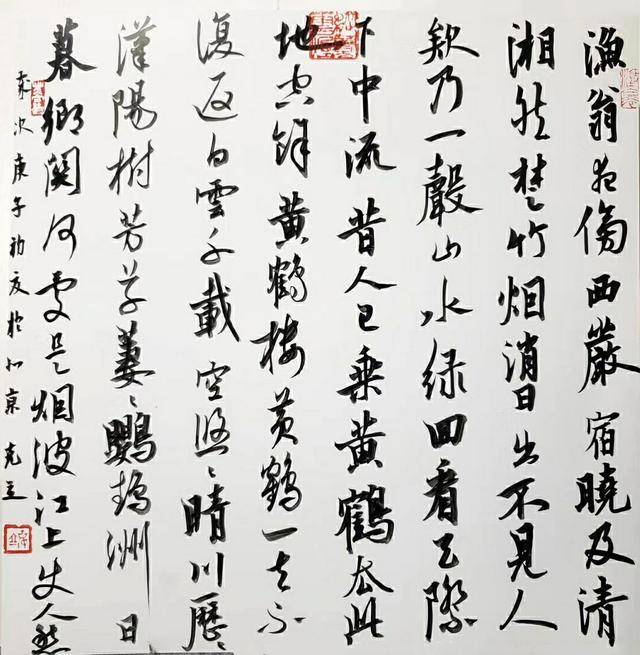 漁翁夜傍西巖宿曉及清
湘然楚竹烟消日出不見人
欸乃一聲山水綠回看天際
下中流昔人已乘黃鶴去此
地空餘黃鶴樓黃鶴一去不
復返白雲千載空悠〻晴川歷〻
漢陽樹芳草萋〻鸚鵡洲日
暮鄉關何處是烟波江上使人愁
歲次庚子初夏於北京克立